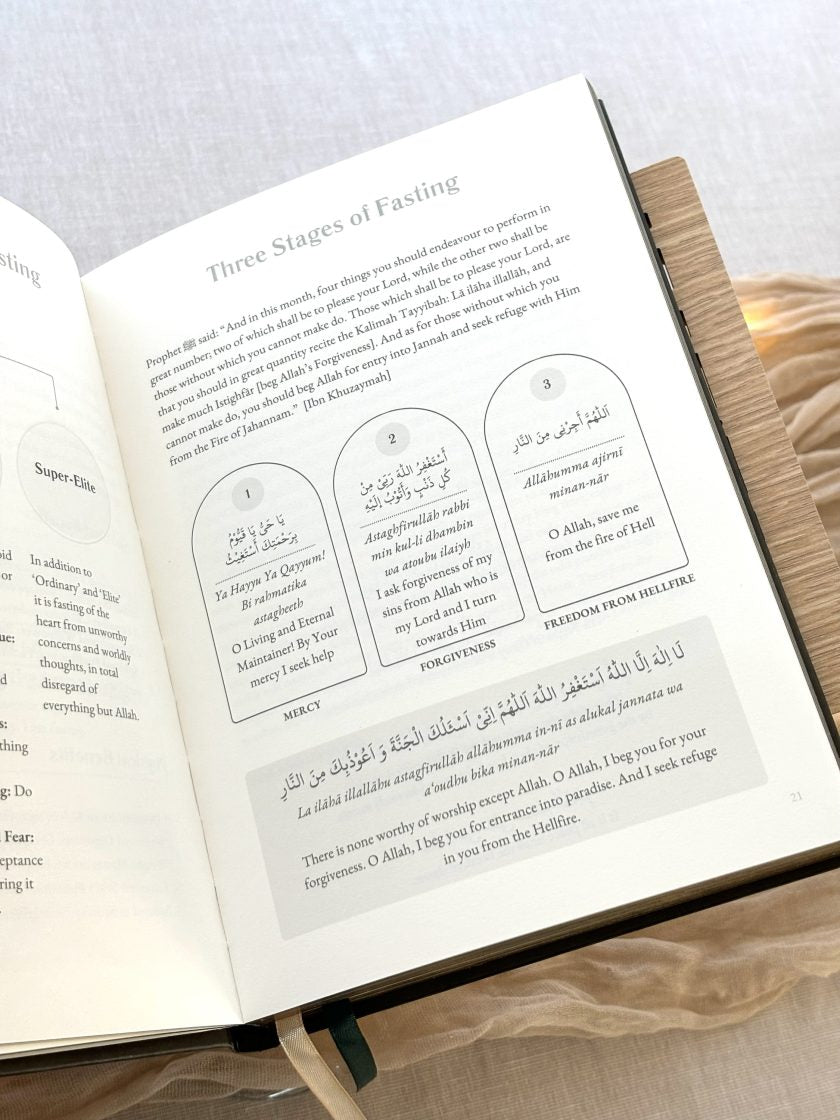 sting
Super-Elite
oid
or
In addition to
‘Ordinary’ and ‘Elite’
it is fasting of the
heart from unworthy
concerns and worldly
thoughts, in total
disregard of
everything but Allah.
ue:
d
s:
thing
g: Do
l Fear:
eptance
ring it
Three Stages of Fasting
Prophet ﷺ said: “And in this month, four things you should endeavour to perform in
great number; two of which shall be to please your Lord, while the other two shall be
those without which you cannot make do. Those which shall be to please your Lord, are
that you should in great quantity recite the Kalimah Tayyibah: Lā ilāha illallāh, and
make much Istighfār [beg Allah’s Forgiveness]. And as for those without which you
cannot make do, you should beg Allah for entry into Jannah and seek refuge with Him
from the Fire of Jahannam.” [Ibn Khuzaymah]
1
يَا حَيُّ يَا قَيُّوْمُ
بِرَحْمَتِكَ أَسْتَغِيْثُ
Ya Hayyu Ya Qayyum!
Bi rahmatika
astagheeth
O Living and Eternal
Maintainer! By Your
mercy I seek help
MERCY
2
أَسْتَغْفِرُ اللّٰهَ رَبِّيْ مِنْ
كُلِّ ذَنْبٍ وَأَتُوْبُ إِلَيْهِ
Astaghfirullāh rabbi
min kul-li dhambin
wa atoubu ilaiyh
I ask forgiveness of my
sins from Allah who is
my Lord and I turn
towards Him
FORGIVENESS
3
اَللّٰهُمَّ أَجِرْنِي مِنَ النَّارِ
Allāhumma ajirnī
minan-nār
O Allah, save me
from the fire of Hell
FREEDOM FROM HELLFIRE
لَا إِلٰهَ إِلَّا اللّٰهُ اَسْتَغْفِرُ اللّٰهَ اَللّٰهُمَّ اِنِّيْ اَسْئَلُكَ الْجَنَّةَ وَ اَعُوْذُبِكَ مِنَ النَّارِ
La ilāhā illallāhu astagfirullāh allāhumma in-nī as alukal jannata wa
a‘oudhu bika minan-nār
There is none worthy of worship except Allah. O Allah, I beg you for your
forgiveness. O Allah, I beg you for entrance into paradise. And I seek refuge
in you from the Hellfire.
21